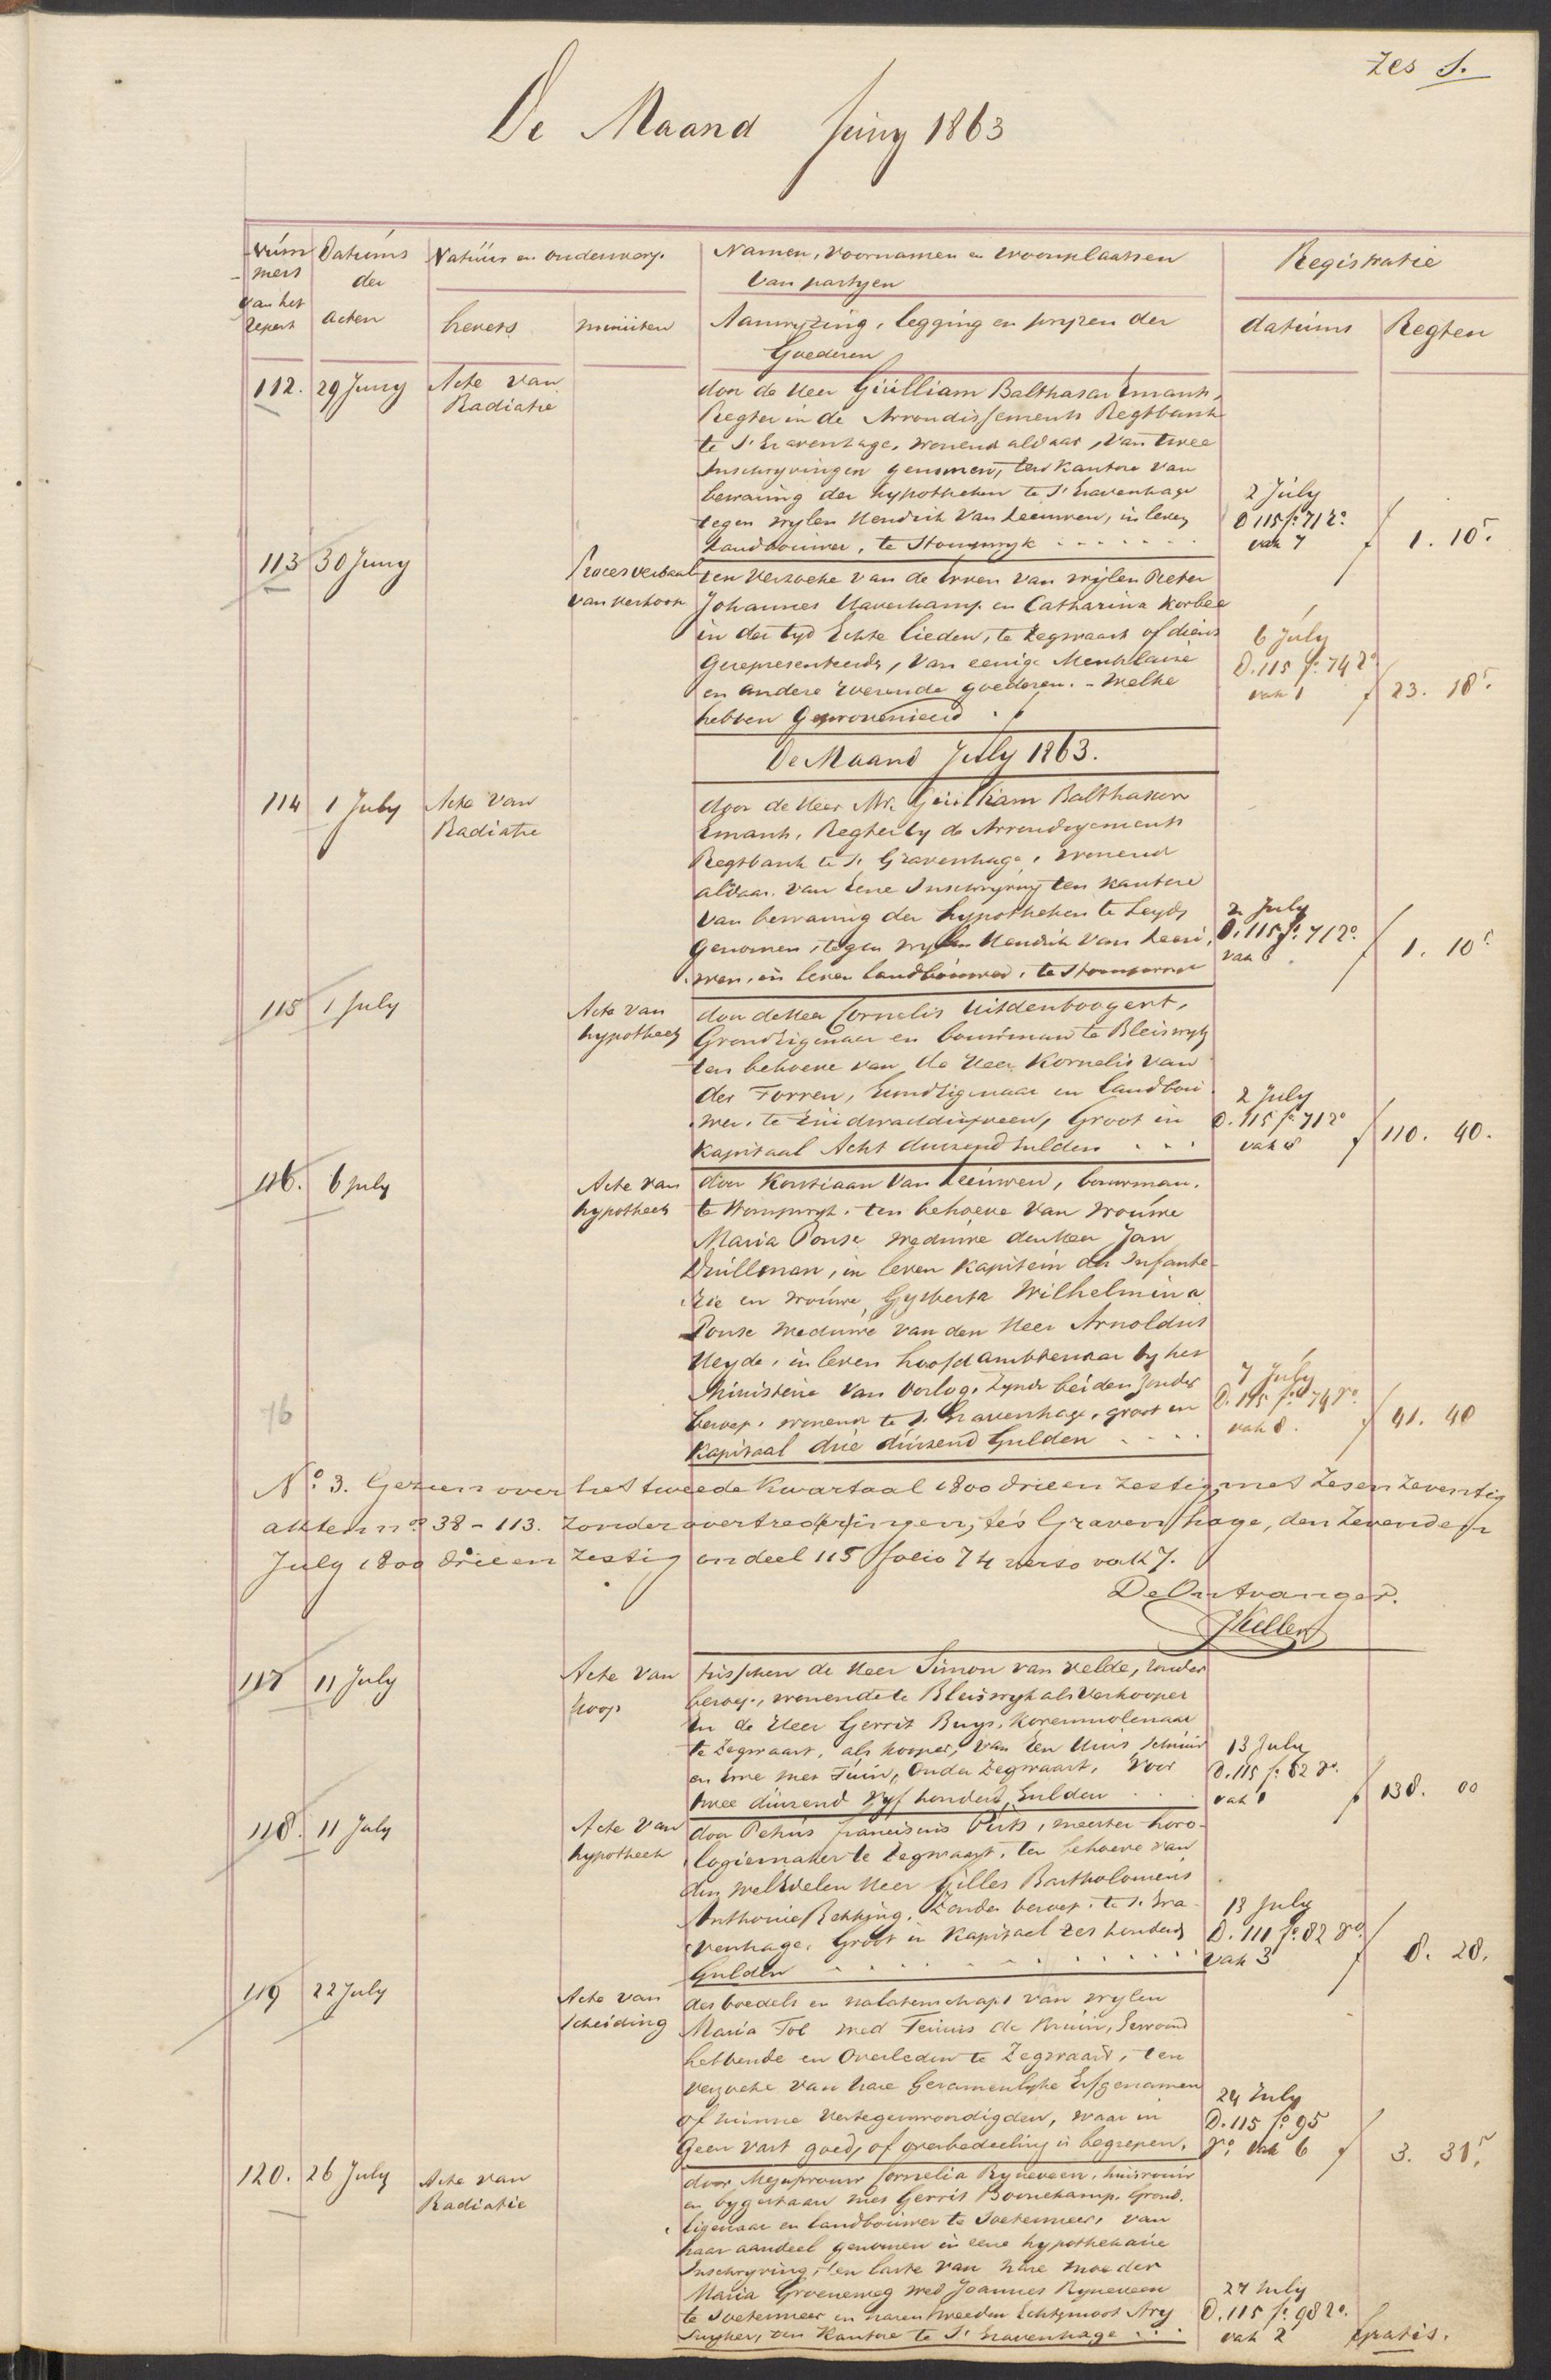 Zes S.
De Maand Juny 1863
Num
mers
van het
Repert
Datums
der
acten
Natuur en onderwerp.
brevets
minuten
Namen, voornamen en woonplaatsen
van partyen
Aanwyzing, legging en pryzen der
Goederen
Registratie
datums
Regten
112. 29 Juny Acte van
Radiatie
door de Heer Guilliam Balthasar Emants,
Regter in de Arrondissements Regtbank
te 's Gravenhage, wonend aldaar, van twee
Inschryvingen genomen, ten kantore van
bewaring der hypotheken te 's Gravenhage
tegen wylen Hendrik van Leeuwen, in leven
Landbouwer, te Stompwyk
2 July
D 115 fo 71 Ro
vak 7
f 1. 10 5
113 30 Juny Proces verbaal
van verkoop
ten verzoeke van de Erven van wylen Pieter
Johannes Haverkamp en Catharina Korbee
in der tyd Echte lieden, te Zegwaart of diens
Gerepresenteerds, van eenige Meubelaire
en andere roerende goederen. - Welke
hebben Geprovenieerd
6 July
D. 115 fo 74 Ro
vak 1
f 23. 18 5
De Maand July 1863.
114 1 July Acte van
Radiatie
door de Heer Mr. Guilliam Balthasar
Emants, Regter by de Arrondissements
Regtbank te 's Gravenhage, wonend
aldaar. van Eene Inschryving ten kantore
van bewaring der hypotheken te Leyde
genomen, tegen wylen Hendrik van Leeu,
wen, in leven landbouwer, te Stompwyk
2 July
D. 115 fo. 71 Ro.
vak 6
f 1. 10 5
115 1 July Acte van
hypotheek
door de Heer Cornelis Uitdenboogert,
Grondeigenaar en bouwman te Bleiswyk
ten behoeve van de Heer Kornelis van
der Torren, Grondeigenaar en landbou
wer, te Zuidwaddinxveen, Groot in
Kapitaal Acht duizend Gulden
2 July
D. 115 fo 71 Ro
vak 8
f 110. 40.
116. 6 July Acte van
hypotheek
door Korstiaan van Leeuwen, bouwman,
te Stompwyk. ten behoeve van vrouwe
Maria Ponse weduwe den Heer Jan
Druilman, in leven Kapitein der Infante-
rie en vrouwe Gysberta Wilhelmina
Ponse weduwe van den Heer Arnoldus
Heyde, in leven hoofdambtenaar by het
Ministerie van Oorlog, zynde beiden zonder
beroep, wonend te 's Gravenhage, groot in
Kapitaal drie duizend Gulden
7 July
D. 115 fo 74 Vo.
vak 8.
f 41. 40
76
No. 3. Gezien over het tweede Kwartaal 1800 drie en zestig met zes en zeventig
akten nos 38 - 113. zonder overtredingen, te 's Gravenhage, den Zevenden
July 1800 drie en zestig en deel 115 folio 74 verso vak 7.
De Ontvanger.
117 11 July Acte van
koop
tusschen de Heer Simon van Velde, zonder
beroep, wonende te Bleiswyk als Verkooper
En de Heer Gerrit Buys, korenmolenaar
te Zegwaart, als kooper, van Een Huis, schuur
en Erve met Tuin, onder Zegwaart, voor
twee duizend vyf honderd Gulden
13 July
D. 115 fo 82 Vo.
vak 1
f 138. 00
118. 11 July Acte van
hypotheek
door Petrus Franciscus Pirts, meester horo-
logiemaker te Zegwaart, ten behoeve van
den welEdelen Heer Gilles Bartholomeus
Anthonie Rekking. Zonder beroep. te 's Gra
venhage. Groot in Kapitaal zes honderd
Gulden
13 July
D. 111 fo. 82 Vo.
vak 3
f 8. 28.
119 22 July Acte van
scheiding
des boedels en nalatenschaps van wylen
Maria Tol wed Teunis de Bruin, Gewoond
hebbende en Overleden te Zegwaart, ten
verzoeke van hare Gezamenlyke Erfgenamen
of hunne Vertegenwoordigden, waar in
geen vast goed, of overbedeeling is begrepen.
24 July
D. 115 fo 95
Vo. vak 6
f 3. 31 5
120. 26 July Acte van
Radiatie
door Mejufvrouw Cornelia Ryneveen, huisvrouw
en bygestaan met Gerrit Boonekamp, Grond.
eigenaar en landbouwer te Soetermeer, van
haar aandeel genomen in eene hypothekaire
Inschryving, ten laste van hare moeder
Maria Groeneweg wed Joannes Ryneveen
te Soetermeer en haren tweeden Echtgenoot Ary
Suyker, ten Kantore te 's Gravenhage
27 July
D. 115 fo 98 Ro.
vak 2
Gratis.